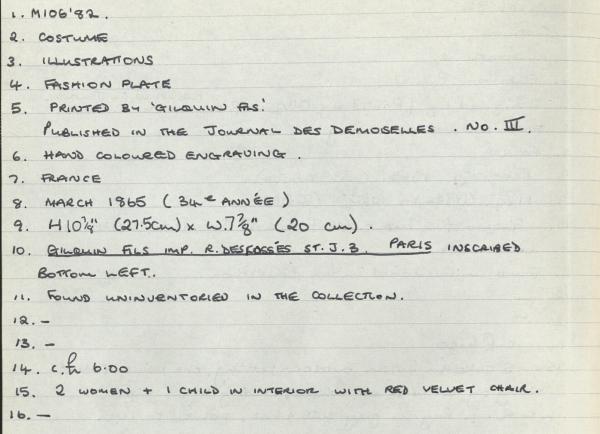 1. M106'82.
2. COSTUME
3. ILLUSTRATIONS
4. FASHION PLATE
5. PRINTED BY 'GILQUIN FILS'.
PUBLISHED IN THE JOURNAL DES DEMOSELLES. NO. III.
6. HAND COLOURED ENGRAVING.
7. FRANCE
8. MARCH 1865 (34e ANNÉE)
9. H 10⅞" (27.5cm) x W.7⅞" (20 cm).
10. GILQUIN FILS IMP. R. DESFOSSÉS ST. J. 3. PARIS INSCRIBED
BOTTOM LEFT.
11. FOUND UNINVENTORIED IN THE COLLECTION.
12. -
13. -
14. 6.00
15. 2 WOMEN + 1 CHILD IN INTERIOR WITH RED VELVET CHAIR.
16. -